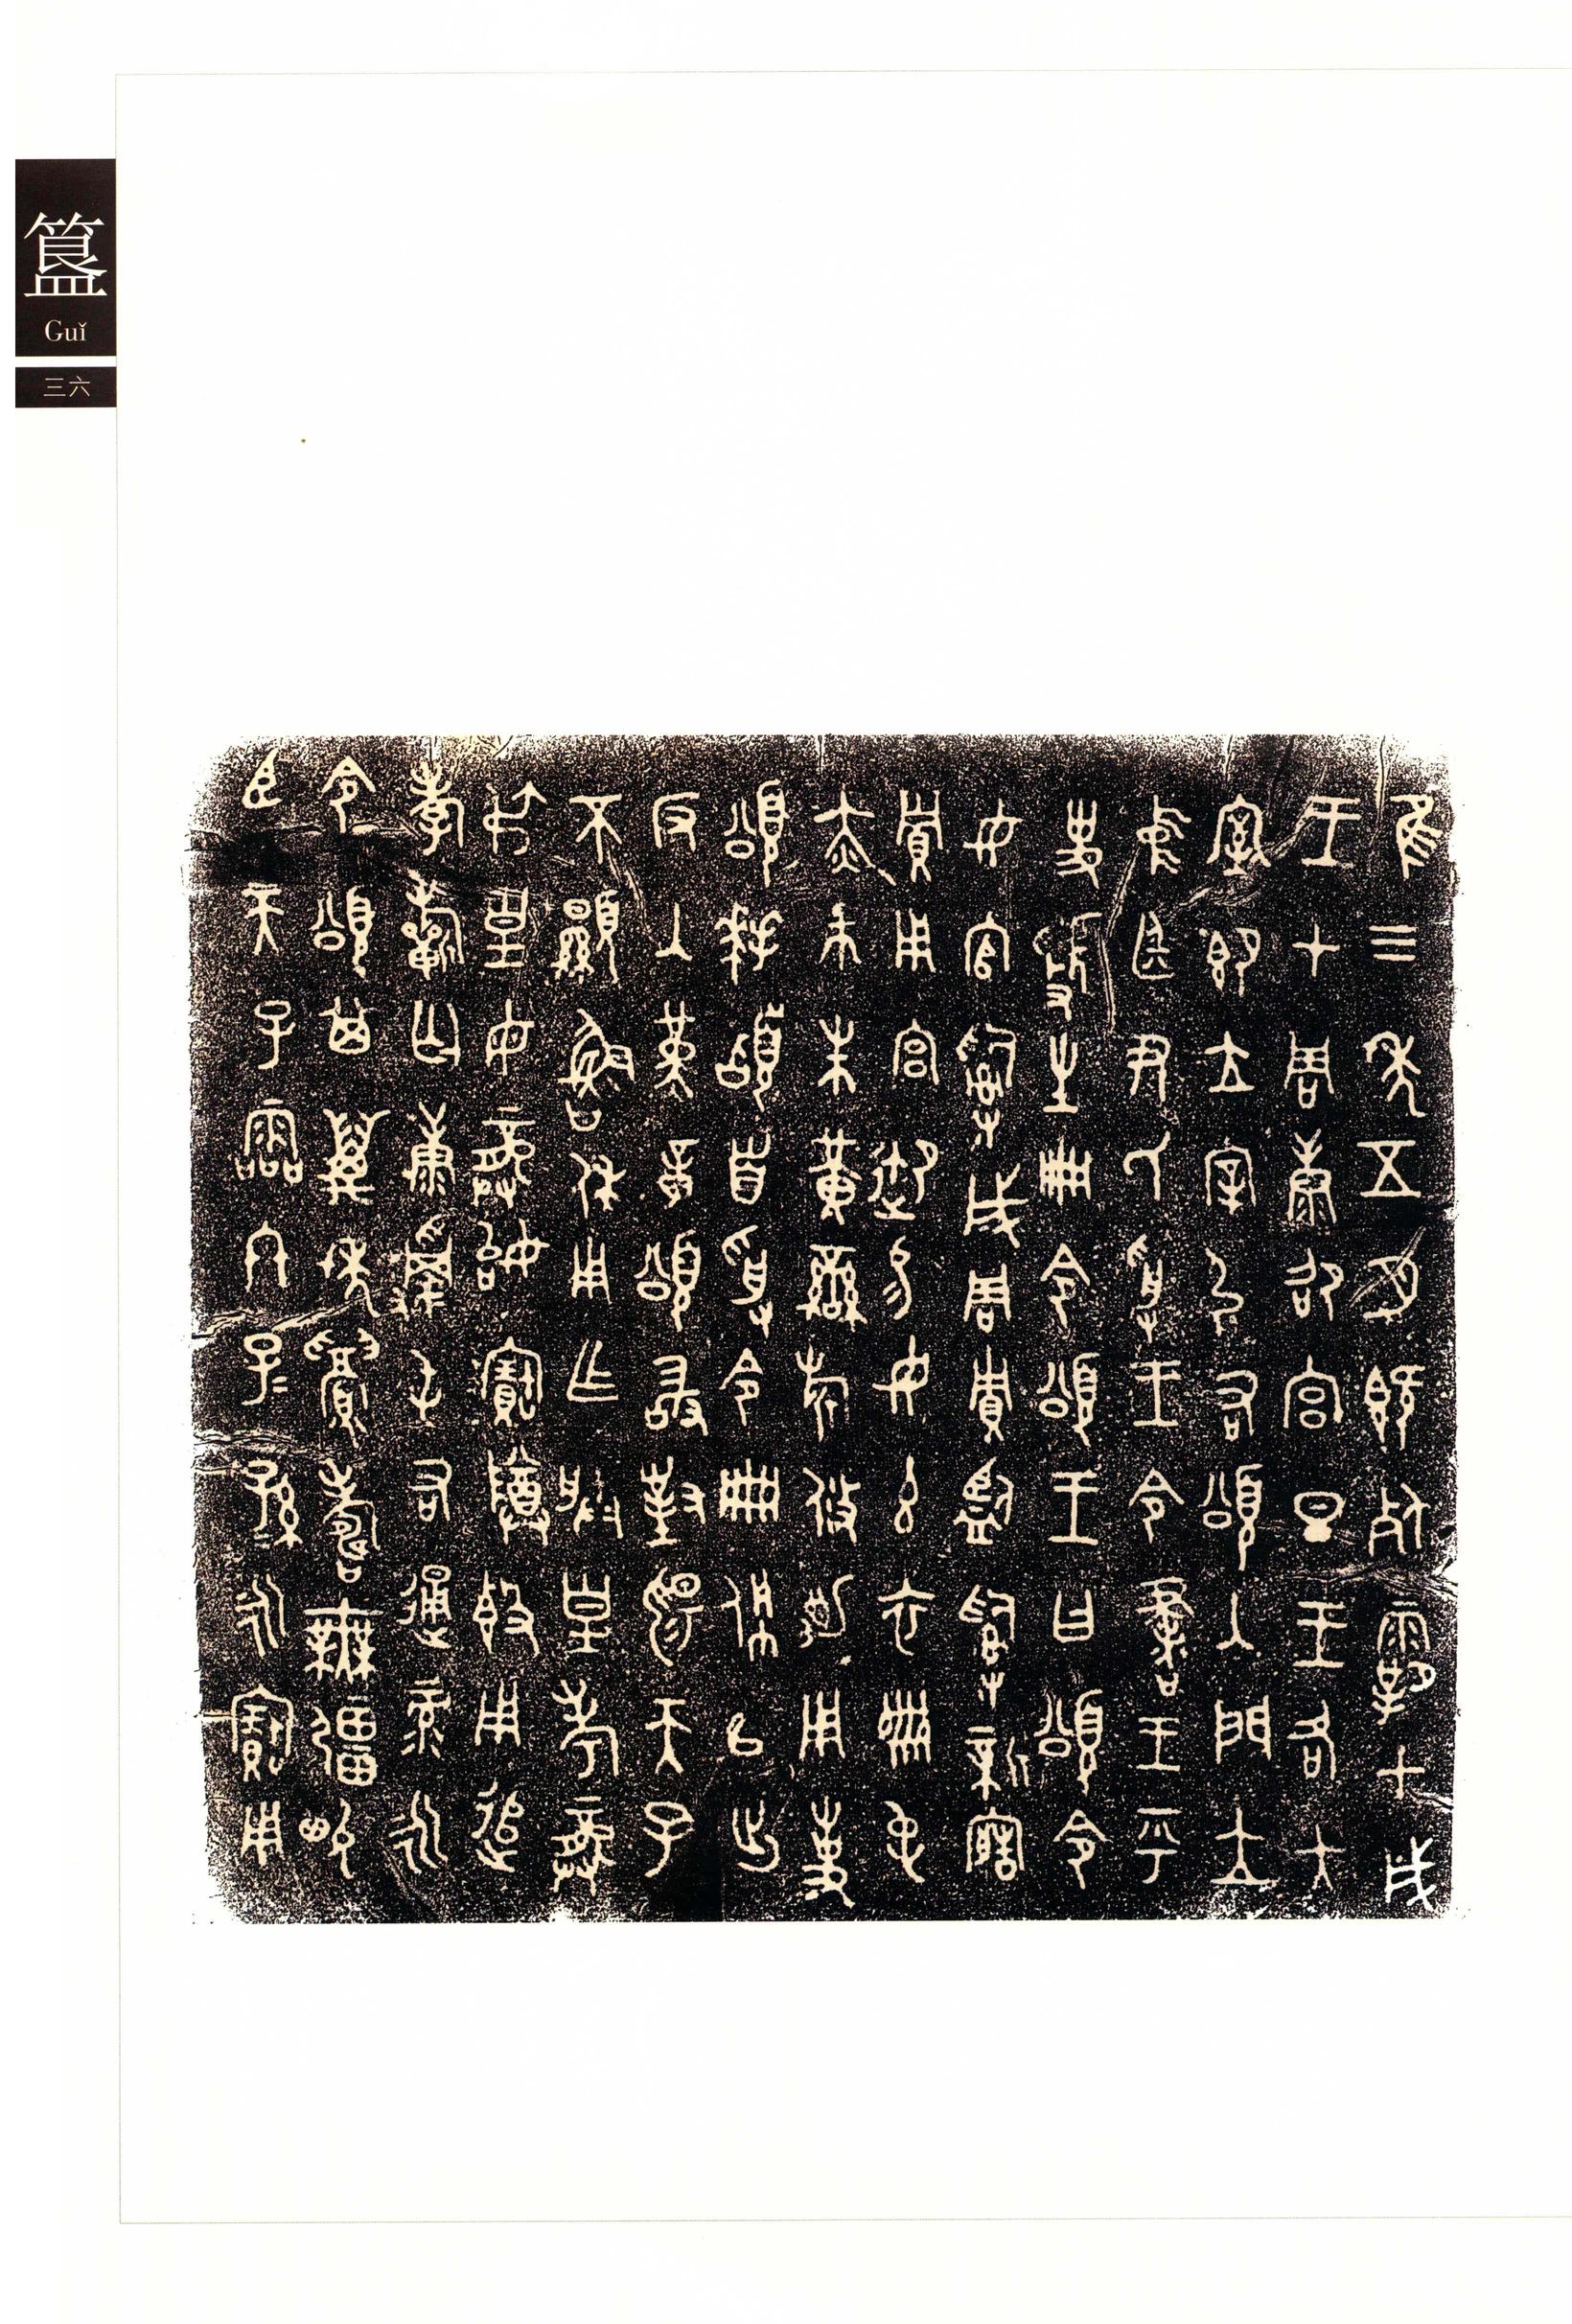 簋
Guǐ
三六
隹三年五月既死霸甲戌
王才周康卲宮旦王各大
室即立宰引右頌入門立
中廷尹氏受王令書王乎
史虢生冊令頌王曰頌令
女官𤔲成周貯監𤔲新寤
貯用宮御易女玄衣黹屯
赤巿朱黃䜌旂攸勒用事
頌拜𩒨首受令冊佩以出
反入堇章頌敢對揚天子
不顯魯休用乍朕皇考龏
弔皇母龏始寶尊簋用追
孝𣄨匄康𩁹屯右通彔永
令頌其萬年眉壽無疆畯
臣天子霝冬子=孫=永寶用